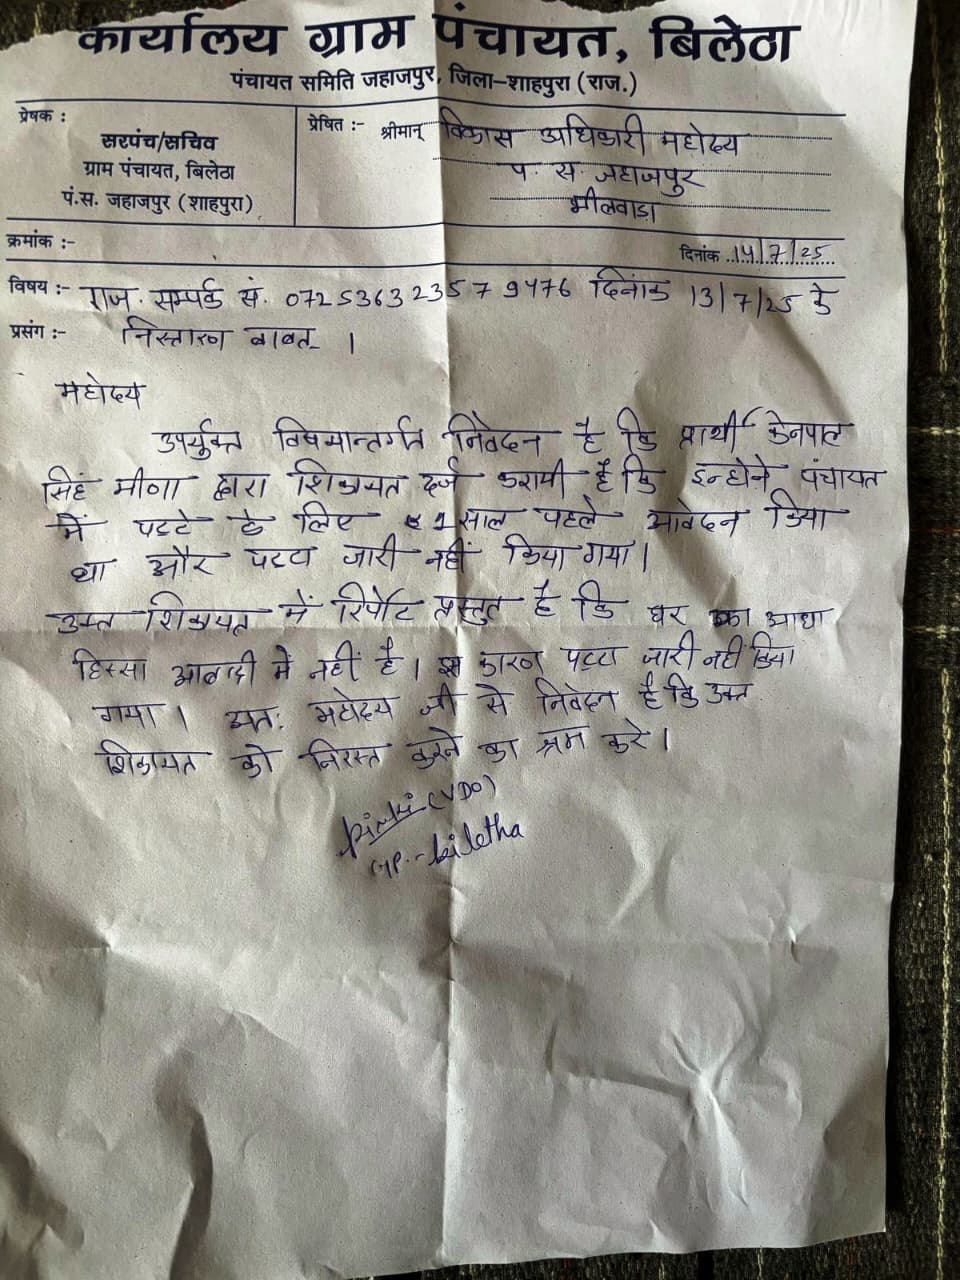 कार्यालय ग्राम पंचायत, बिलेठा
पंचायत समिति जहाजपुर, जिला-शाहपुरा (राज.)
प्रेषक :
सरपंच/सचिव
ग्राम पंचायत, बिलेठा
पं.स. जहाजपुर (शाहपुरा)
प्रेषित :- श्रीमान् विकास अधिकारी महोदय
प. स. जहाजपुर
भीलवाड़ा
क्रमांक :-
दिनांक 14/7/25
विषय :- राज. सम्पर्क सं. 072536323579476 दिनांक 13/7/25 के
प्रसंग :- निस्तारण बाबत् ।
महोदय
उपर्युक्त विषयान्तर्गत निवेदन है कि प्रार्थी
सिंह मीणा द्वारा शिकायत दर्ज करायी है कि इन्होने पंचायत
में पट्टे के लिए 1 साल पहले आवेदन किया
था और पट्टा जारी नहीं किया गया।
उक्त शिकायत में रिर्पोट प्रस्तुत है कि घर का आधा
हिस्सा आबादी में नहीं है। इस कारण पट्टा जारी नहीं किया
गया। अतः महोदय जी से निवेदन है कि उक्त
शिकायत को निरस्त करने का श्रम करे।
(VDO)
GP.-biletha